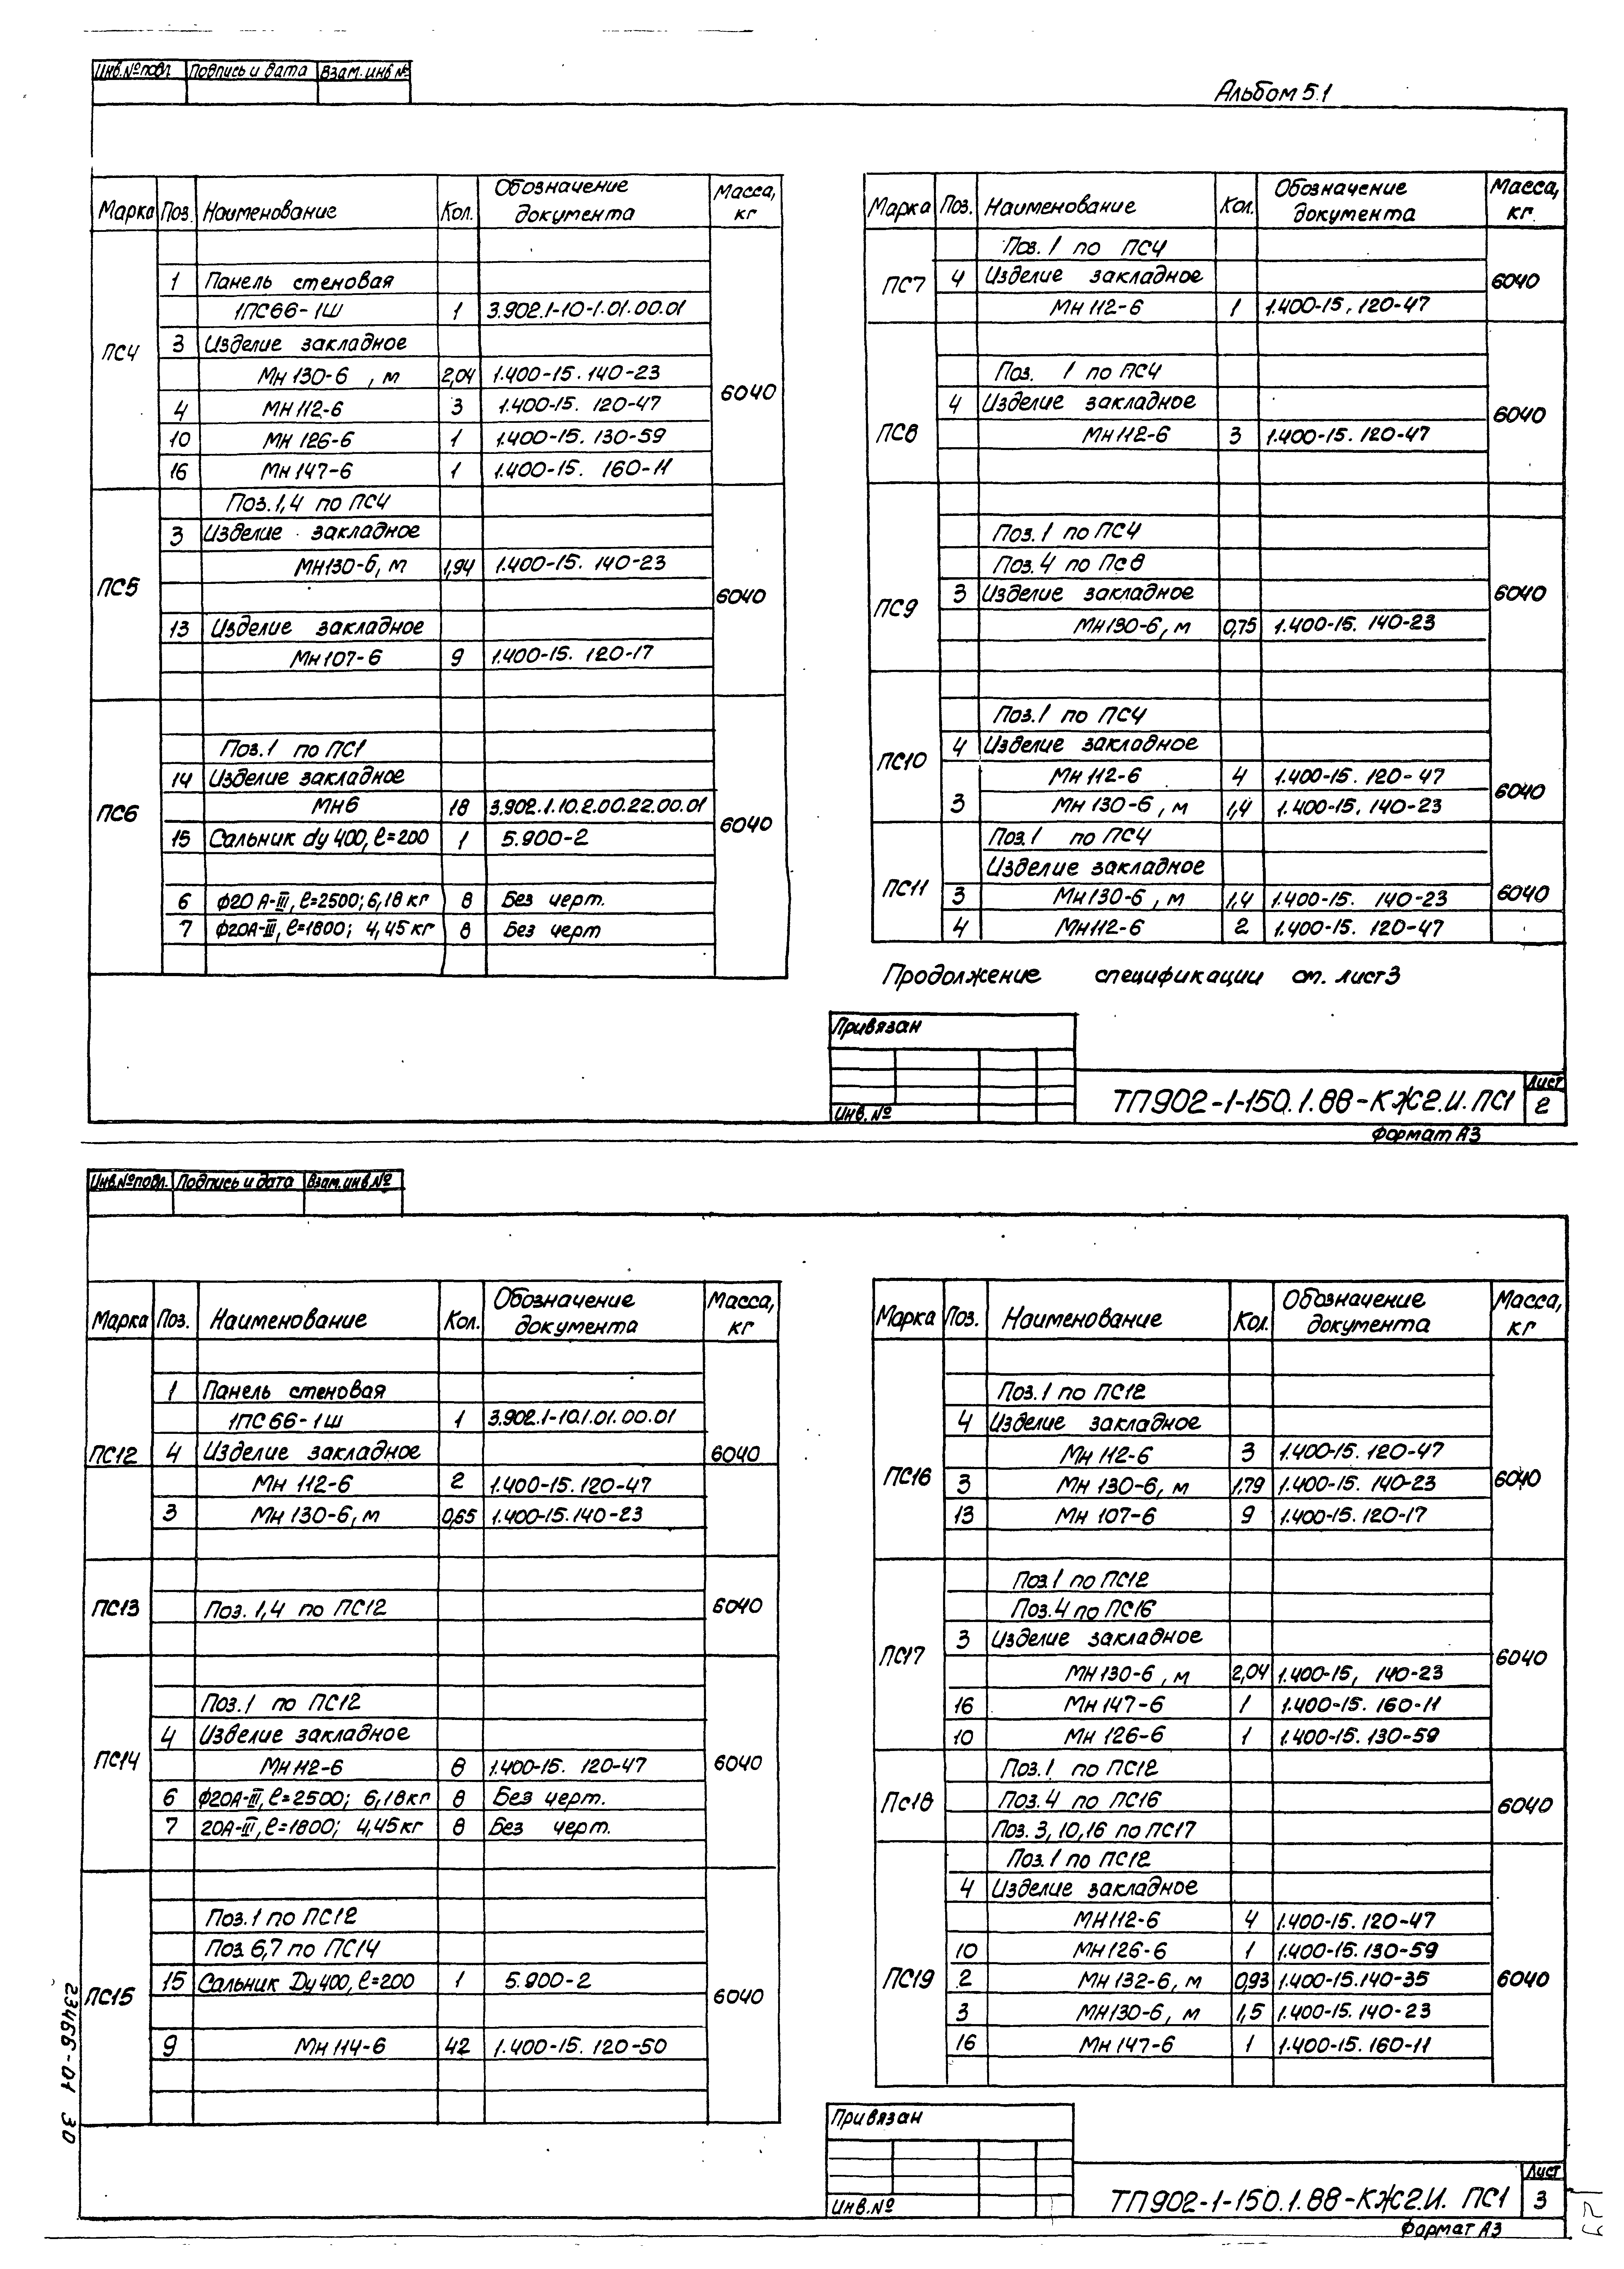 Инв.№подл. Подпись и дата Взам.инв№
Альбом 5.1
Марка Поз. Наименование Кол. Обозначение документа Масса, кг
ПС4 6040
1 Панель стеновая
1ПС66-1Ш 1 3.902.1-10-1.01.00.01
3 Изделие закладное
Мн 130-6 , м 2,04 1.400-15. 140-23
4 МН 112-6 3 1.400-15. 120-47
10 Мн 126-6 1 1.400-15. 130-59
16 Мн 147-6 1 1.400-15. 160-11
ПС5 6040
Поз. 1,4 по ПС4
3 Изделие закладное
МН130-6, м 1,94 1.400-15. 140-23
13 Изделие закладное
Мн 107-6 9 1.400-15. 120-17
ПС6 6040
Поз. 1 по ПС1
14 Изделие закладное
МН6 18 3.902.1.10.2.00.22.00.01
15 Сальник dу 400, ℓ=200 1 5.900-2
6 ф20 А-III, ℓ=2500; 6,18 кг 8 Без черт.
7 ф20А-III, ℓ=1800; 4,45кг 8 Без черт
Марка Поз. Наименование Кол. Обозначение документа Масса, кг.
ПС7 6040
Поз. 1 по ПС4
4 Изделие закладное
Мн 112-6 1 1.400-15, 120-47
ПС8 6040
Поз. 1 по ПС4
4 Изделие закладное
Мн 112-6 3 1.400-15. 120-47
ПС9 6040
Поз. 1 по ПС4
Поз. 4 по ПС8
3 Изделие закладное
Мн130-6, м 0,75 1.400-15. 140-23
ПС10 6040
Поз. 1 по ПС4
4 Изделие закладное
Мн 112-6 4 1.400-15. 120-47
3 Мн 130-6 , м 1,4 1.400-15, 140-23
ПС11 6040
Поз. 1 по ПС4
Изделие закладное
3 Мн130-6 , м 1,4 1.400-15. 140-23
4 Мн112-6 2 1.400-15. 120-47
Продолжение спецификации см. лист3
Привязан
Инв. №
ТП902-1-150.1.88-КЖ2.И.ПС1
Лист
2
Формат А3
Инв.№подл. Подпись и дата Взам.инв.№
Марка Поз. Наименование Кол. Обозначение документа Масса, кг
ПС12 6040
1 Панель стеновая
1ПС66-1Ш 1 3.902.1-10.1.01.00.01
4 Изделие закладное
Мн 112-6 2 1.400-15. 120-47
3 Мн 130-6, м 0,65 1.400-15. 140-23
ПС13 Поз. 1,4 по ПС12 6040
ПС14 6040
Поз. 1 по ПС12
4 Изделие закладное
Мн 112-6 8 1.400-15. 120-47
6 ф20А-III, ℓ=2500; 6,18кг 8 Без черт.
7 20А-III, ℓ=1800; 4,45кг 8 Без черт.
ПС15 6040
Поз. 1 по ПС12
Поз 6,7 по ПС14
15 Сальник Dу 400, ℓ=200 1 5.900-2
9 Мн 114-6 42 1.400-15. 120-50
Марка Поз. Наименование Кол. Обозначение документа Масса, кг
ПС16 6040
Поз. 1 по ПС12
4 Изделие закладное
Мн 112-6 3 1.400-15. 120-47
3 Мн 130-6, м 1,79 1.400-15. 140-23
13 Мн 107-6 9 1.400-15. 120-17
ПС17 6040
Поз. 1 по ПС12
Поз. 4 по ПС16
3 Изделие закладное
Мн 130-6 , м 2,04 1.400-15, 140-23
16 Мн 147-6 1 1.400-15. 160-11
10 Мн 126-6 1 1.400-15. 130-59
ПС18 6040
Поз. 1 по ПС12
Поз. 4 по ПС16
Поз. 3, 10, 16 по ПС17
ПС19 6040
Поз. 1 по ПС12
4 Изделие закладное
МН112-6 4 1.400-15. 120-47
10 Мн 126-6 1 1.400-15. 130-59
2 Мн 132-6, м 0,93 1.400-15. 140-35
3 МН130-6, м 1,5 1.400-15. 140-23
16 Мн 147-6 1 1.400-15. 160-11
23466-01 30
Привязан
Инв.№
ТП902-1-150.1.88-КЖ2.И. ПС1
Лист
3
Формат А3